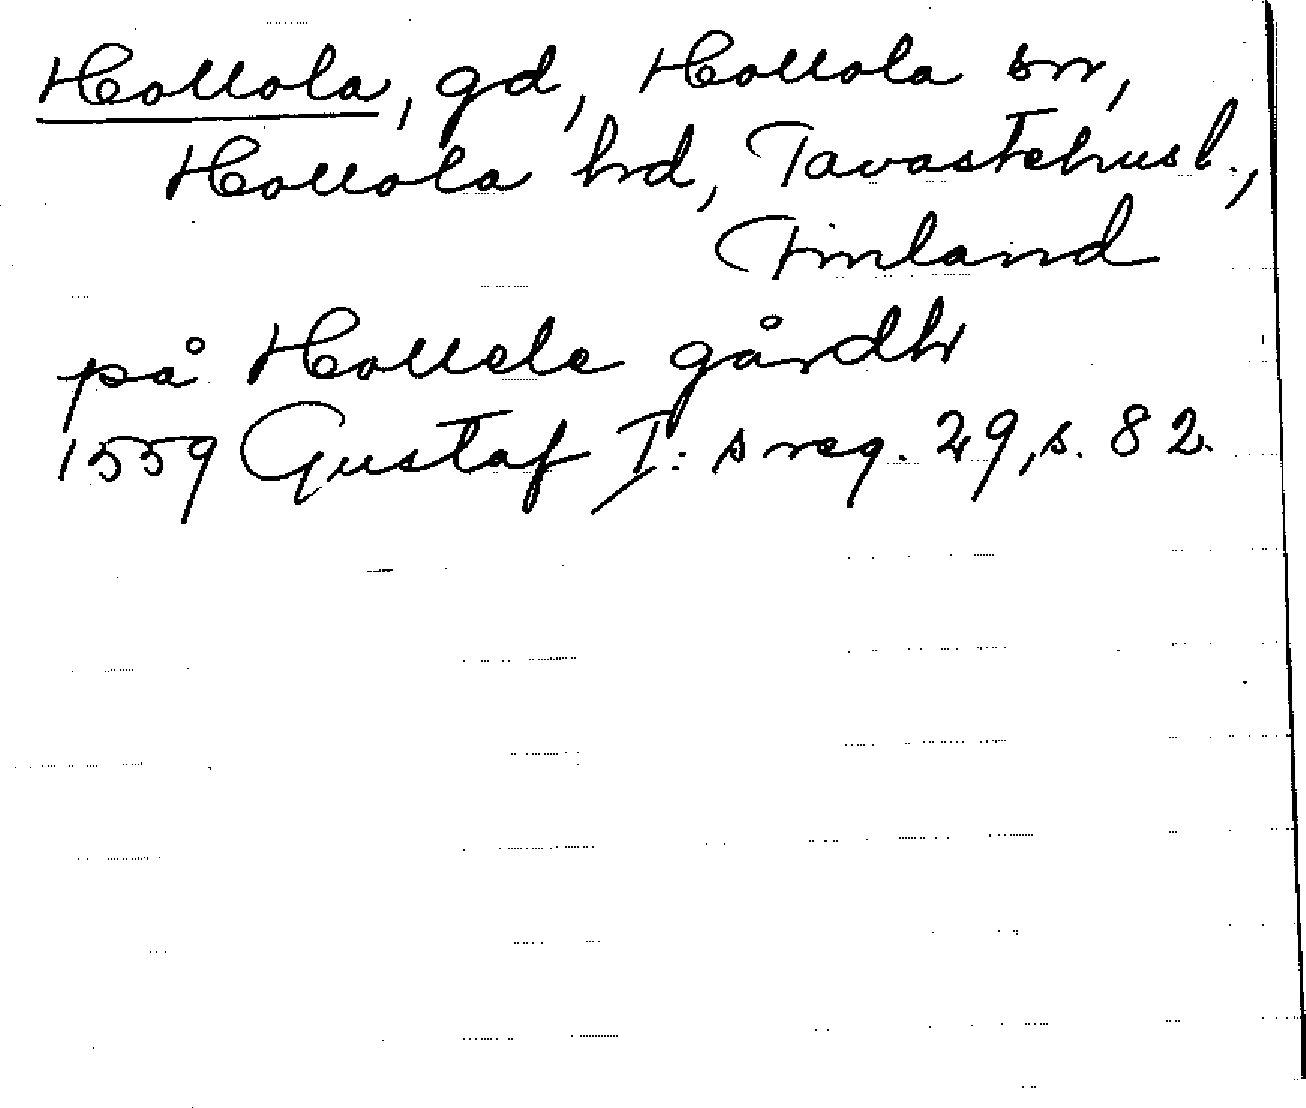 Hollola, gd, Hollola sn,
Hollola hd, Tavastehus l.,
Finland
på Hollele gårdh
1559 Gustaf I:s reg. 29, s. 82.